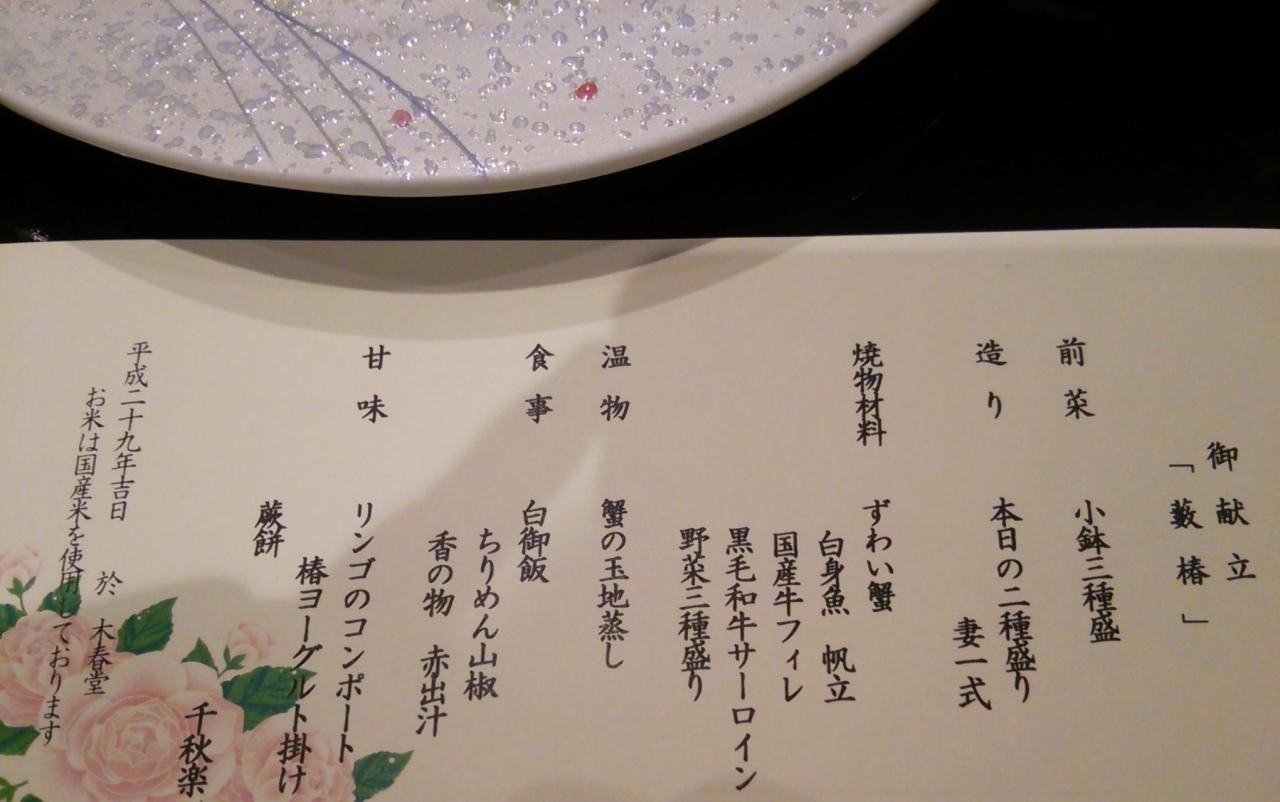 御献立
「藪椿」
前菜
小鉢三種盛
造り
本日の二種盛り
妻一式
焼物材料
ずわい蟹
白身魚 帆立
国産牛フィレ
黒毛和牛サーロイン
野菜三種盛り
温物
蟹の玉地蒸し
食事
白御飯
ちりめん山椒
香の物 赤出汁
甘味
リンゴのコンポート
椿ヨーグルト掛け
蕨餅
千秋楽
平成二十九年吉日
於 木春堂
お米は国産米を使用しております